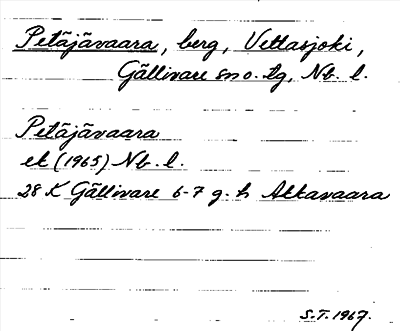 Petäjävaara, berg, Vettasjoki,
Gällivare sn o. tg, Nb. l.
Petäjävaara
ek (1965) Nb. l.
28 K Gällivare 6-7 g-h Allavaara
S.T. 1967.